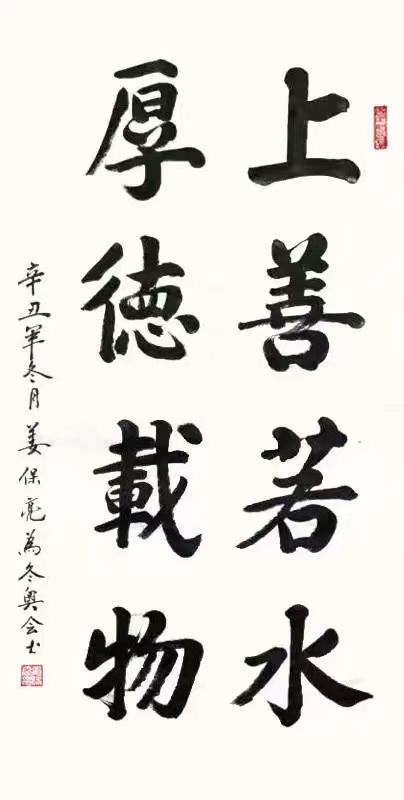 上善若水
厚德載物
辛丑年冬月姜保亮為冬奥会书